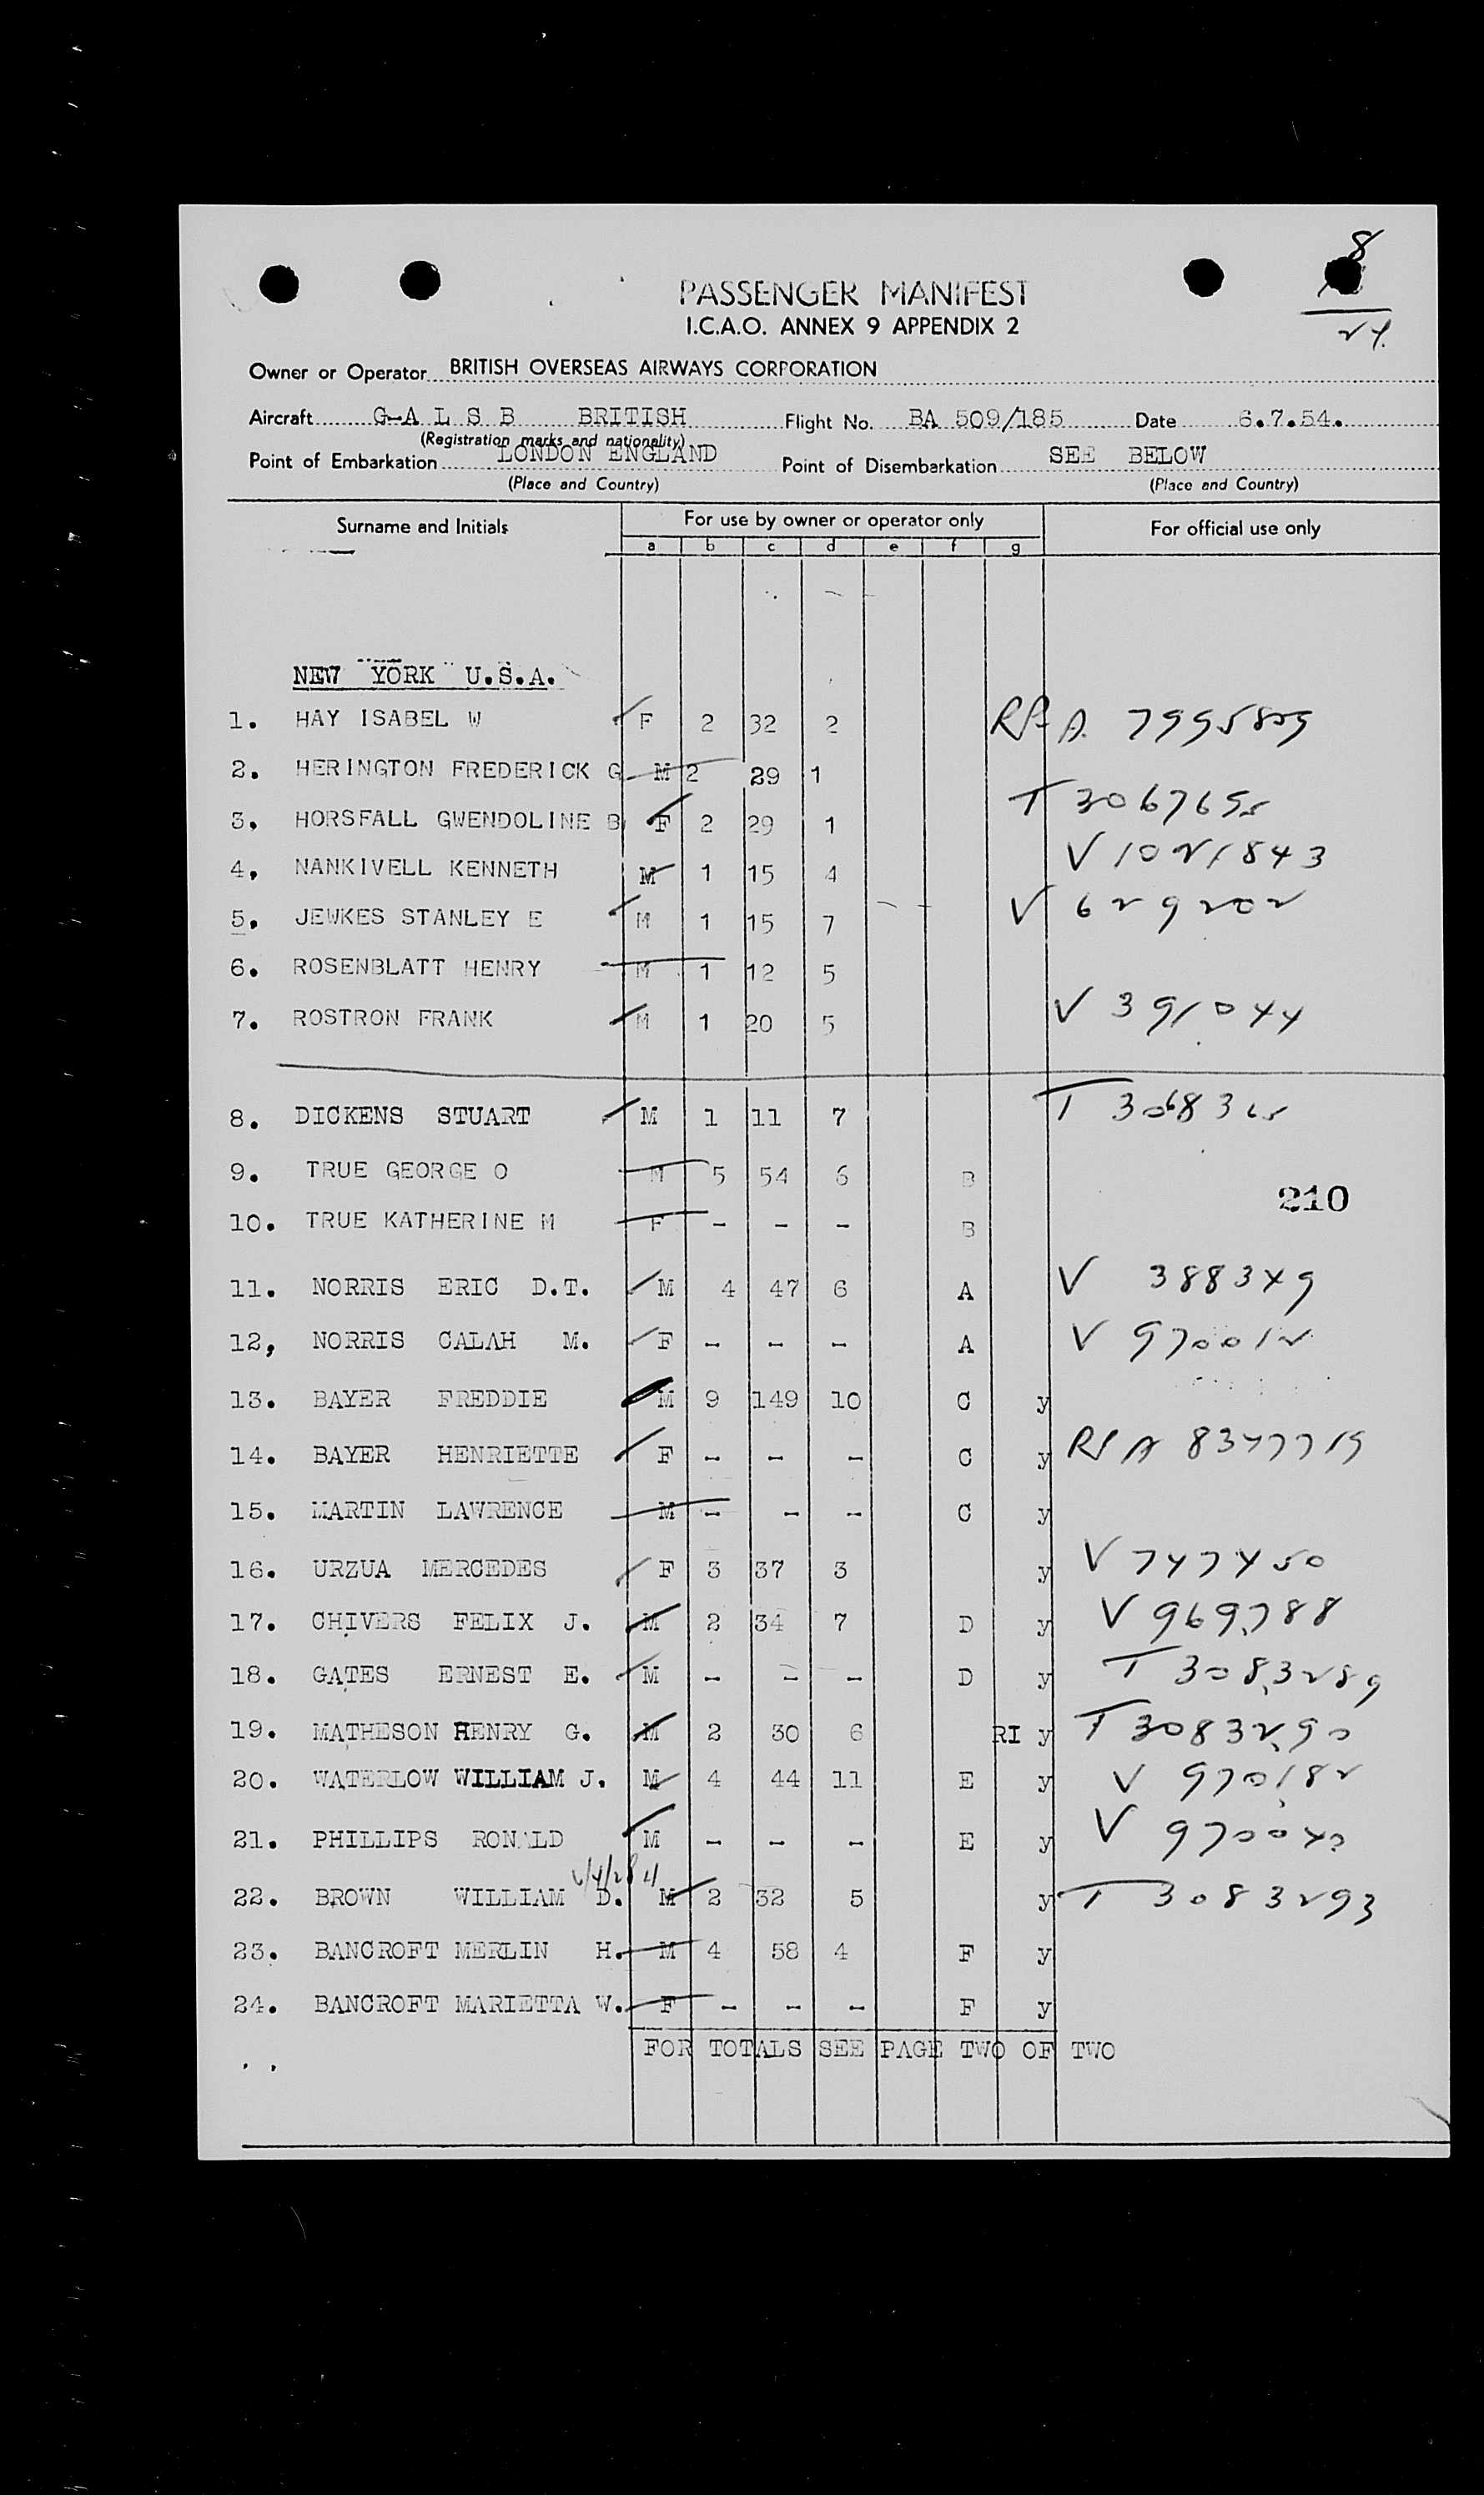 8
24
PASSENGER MANIFEST
I.C.A.O. ANNEX 9 APPENDIX 2
Owner or Operator BRITISH OVERSEAS AIRWAYS CORPORATION
Aircraft G-A L S B BRITISH Flight No. BA 509/185 Date 6.7.54.
(Registration marks and nationality)
Point of Embarkation LONDON ENGLAND Point of Disembarkation SEE BELOW
(Place and Country) (Place and Country)
Surname and Initials For use by owner or operator only For official use only
a b c d e f g
NEW YORK U.S.A.
1. HAY ISABEL W F 2 32 2
2. HERINGTON FREDERICK G M 2 29 1
3. HORSFALL GWENDOLINE B F 2 29 1 T 306765
4. NANKIVELL KENNETH M 1 15 4 V 1021843
5. JEWKES STANLEY E M 1 15 7 V 629202
6. ROSENBLATT HENRY M 1 12 5
7. ROSTRON FRANK M 1 20 5 V 391044
8. DICKENS STUART M 1 11 7
9. TRUE GEORGE O M 5 54 6 B
210
10. TRUE KATHERINE M F - - - B
11. NORRIS ERIC D.T. M 4 47 6 A V 388349
12, NORRIS CALAH M. F - - - A V 970012
13. BAYER FREDDIE M 9 149 10 C y
14. BAYER HENRIETTE F - - - C y
15. MARTIN LAWRENCE M - - - C y
16. URZUA MERCEDES F 3 37 3 y V 747450
17. CHIVERS FELIX J. M 2 34 7 D y V 969788
18. GATES ERNEST E. M - - - D y T 3083289
19. MATHESON HENRY G. M 2 30 6 RI y T 3083290
20. WATERLOW WILLIAM J. M 4 44 11 E y V 970182
21. PHILLIPS RONALD M - - - E y V 970040
22. BROWN WILLIAM D. M 2 32 5 y T 3083293
23. BANCROFT MERLIN H. M 4 58 4 F y
24. BANCROFT MARIETTA W. F - - - F y
FOR TOTALS SEE PAGE TWO OF TWO